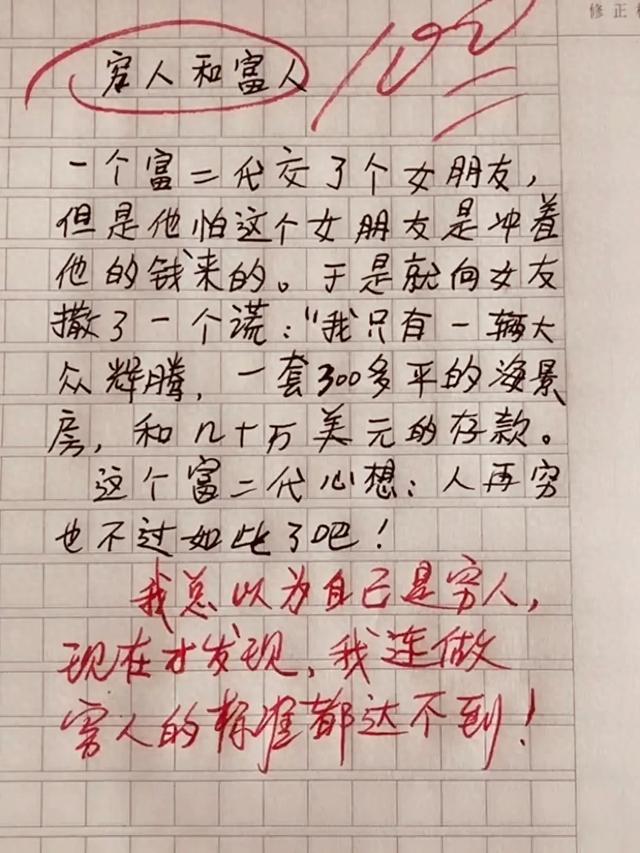 修正
穷人和富人
100
一个富二代交了个女朋友，
但是他怕这个女朋友是冲着
他的钱来的。于是就向女友
撒了一个谎："我只有一辆大
众辉腾，一套300多平的海景
房，和几十万美元的存款。
这个富二代心想：人再穷
也不过如此了吧！
我总以为自己是穷人，
现在才发现，我连做
穷人的标准都达不到！